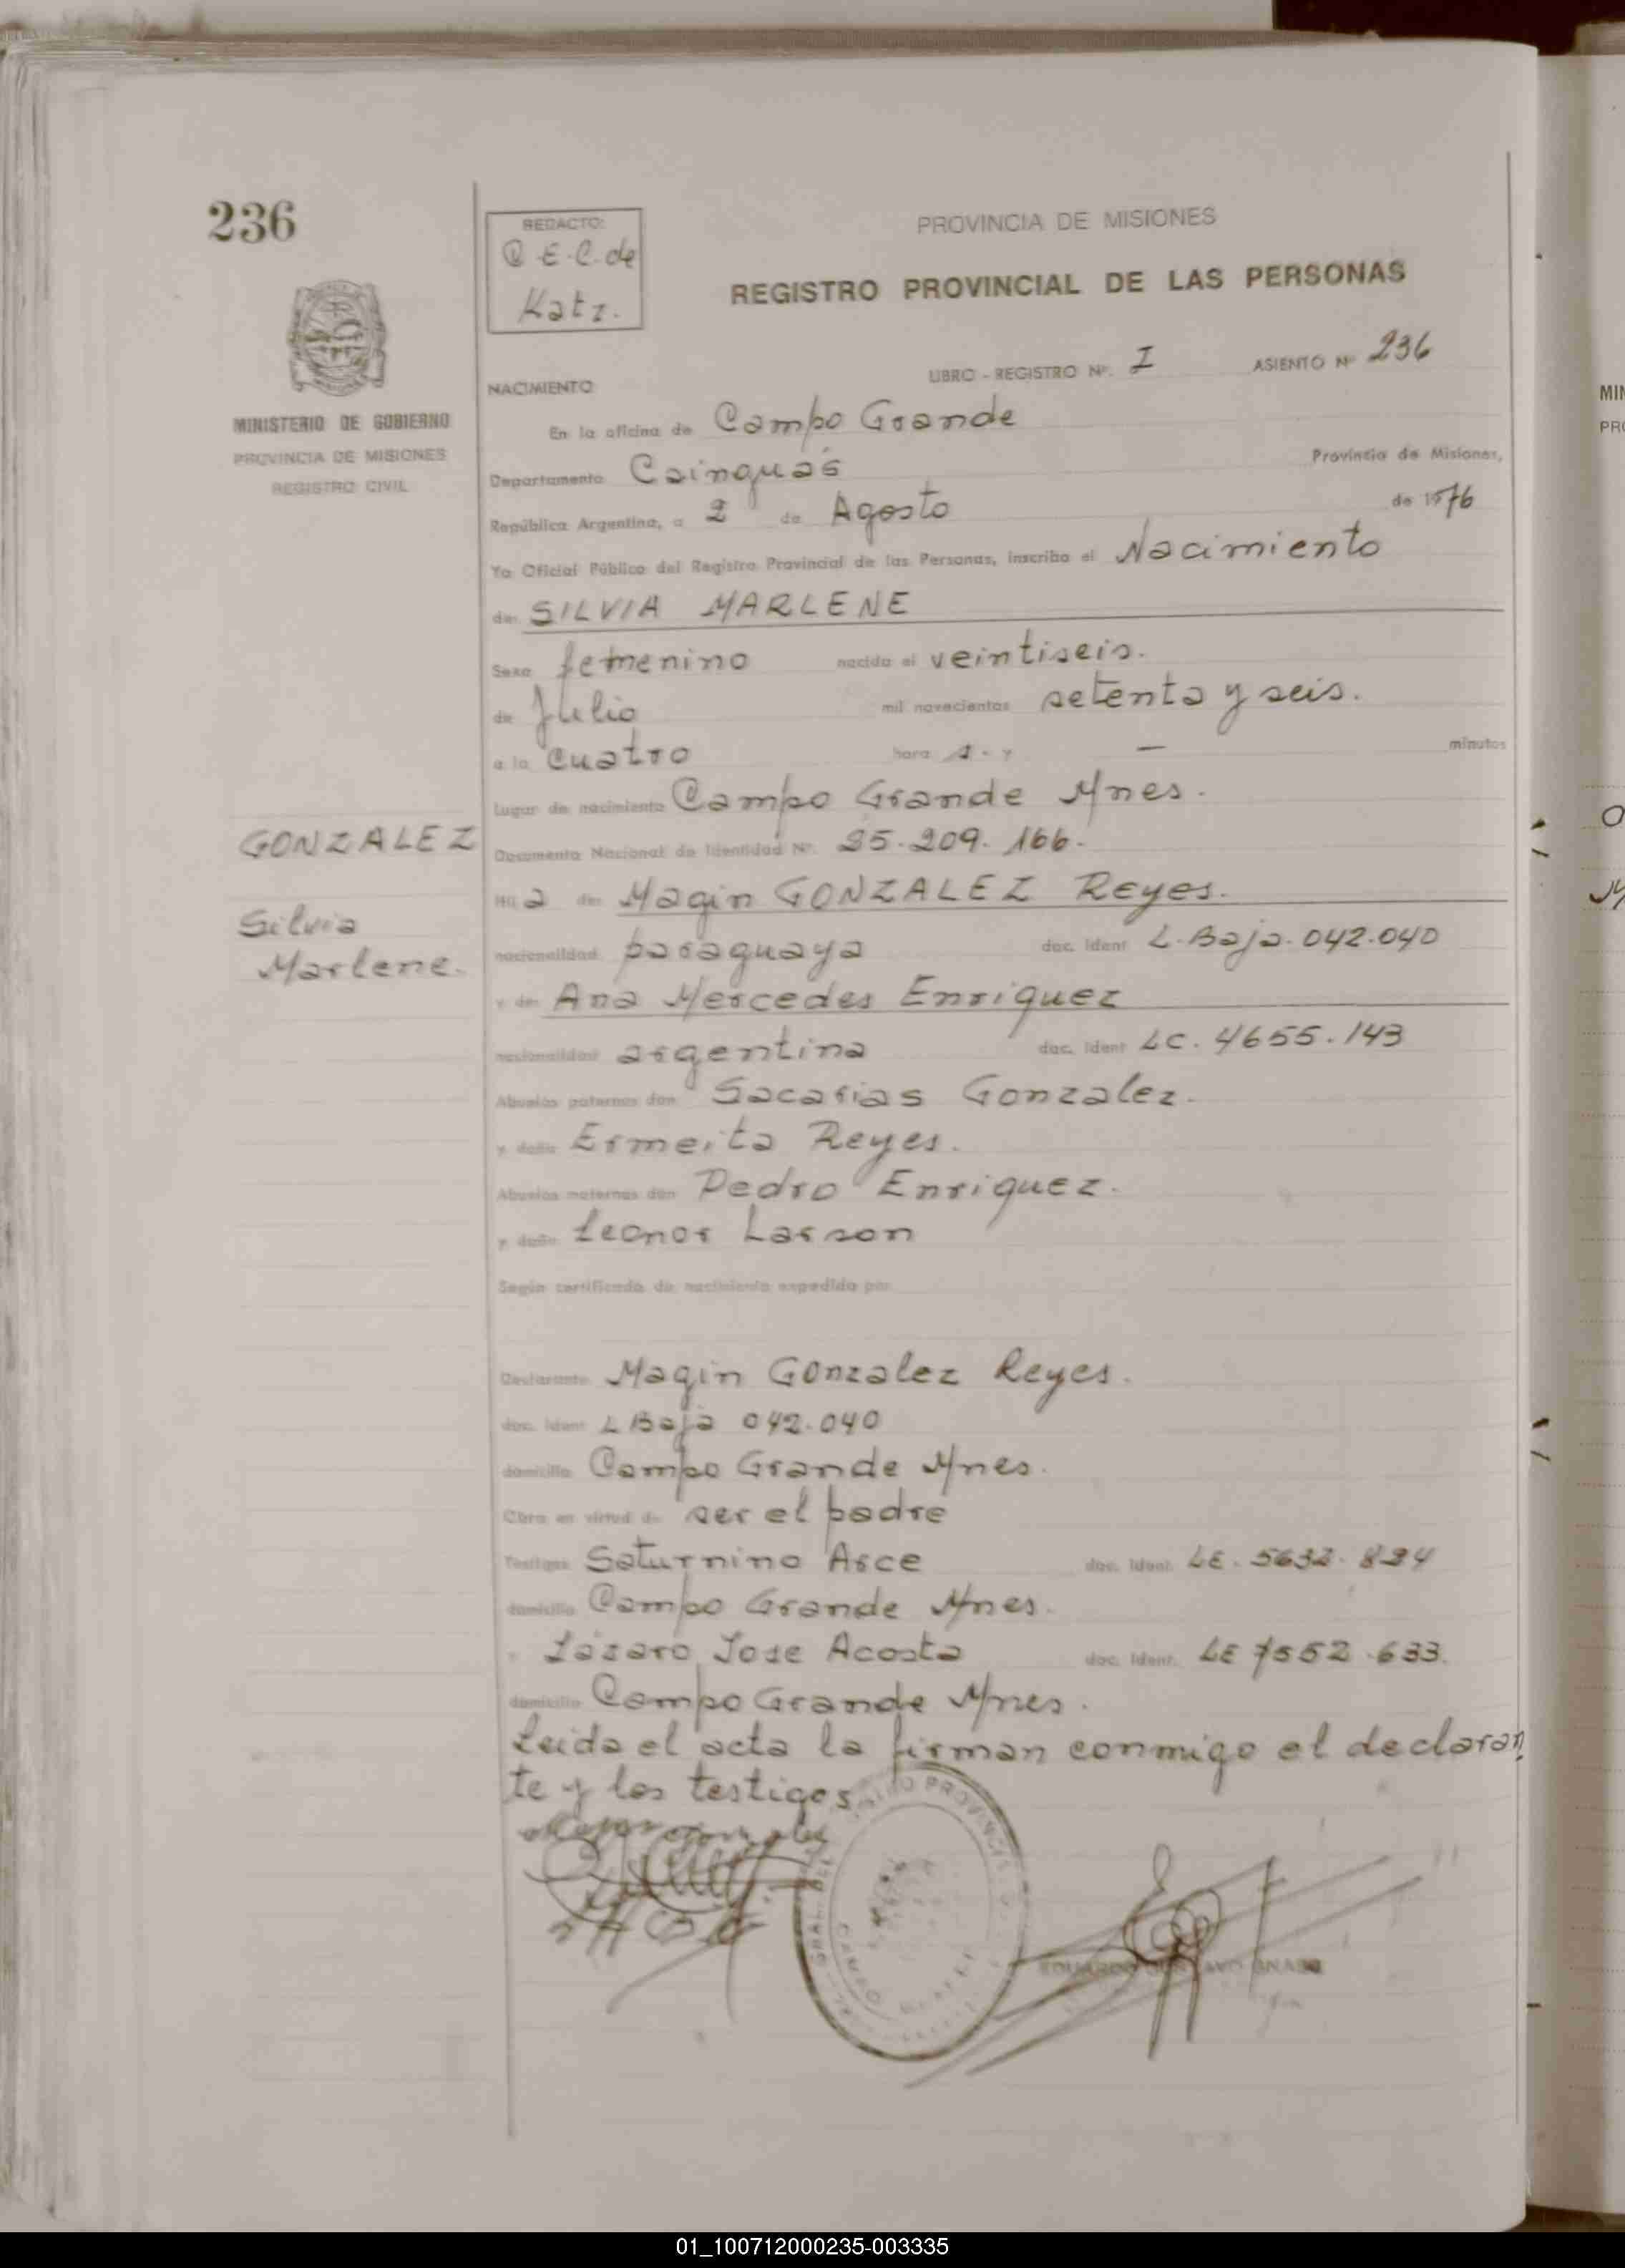 236
REDACTO:
C.E.C. de
Katz.
PROVINCIA DE MISIONES
REGISTRO PROVINCIAL DE LAS PERSONAS
MINISTERIO DE GOBIERNO
PROVINCIA DE MISIONES
REGISTRO CIVIL
NACIMIENTO
LIBRO - REGISTRO Nº. I ASIENTO Nº 236
En la oficina de Campo Grande
Departamento Cainguás Provincia de Misiones,
República Argentina, a 2 de Agosto de 1976
Yo Oficial Público del Registro Provincial de las Personas, inscribo el Nacimiento
de SILVIA MARLENE
Sexo femenino nacido el veintiseis.
de Julio mil novecientos setenta y seis.
a la cuatro hora s - y — minutos
Lugar de nacimiento Campo Grande Mnes.
GONZALEZ
Silvia
Marlene.
Documento Nacional de Identidad Nº. 25.209.166.
Hij a de Magin GONZALEZ Reyes.
nacionalidad paraguaya doc. Ident L. Baja. 042.040
y de Ana Mercedes Enriquez
nacionalidad argentina doc. Ident LC. 4655.143
Abuelos paternos don Sacarias Gonzalez.
y doña Ermeita Reyes.
Abuelos maternos don Pedro Enriquez.
y doña Leonor Larson
Según certificado de nacimiento expedido por
Declarante Magin Gonzalez Reyes.
doc. Ident L Baja 042.040
domicilio Campo Grande Mnes.
Obra en virtud de ser el padre
Testigos Saturnino Arce doc. Ident. LE. 5632.824
domicilio Campo Grande Mnes.
y Lázaro Jose Acosta doc. Ident. LE 7552.633.
domicilio Campo Grande Mnes.
Leida el acta la firman conmigo el declaran
te y los testigos
CAMPO
01_100712000235-003335